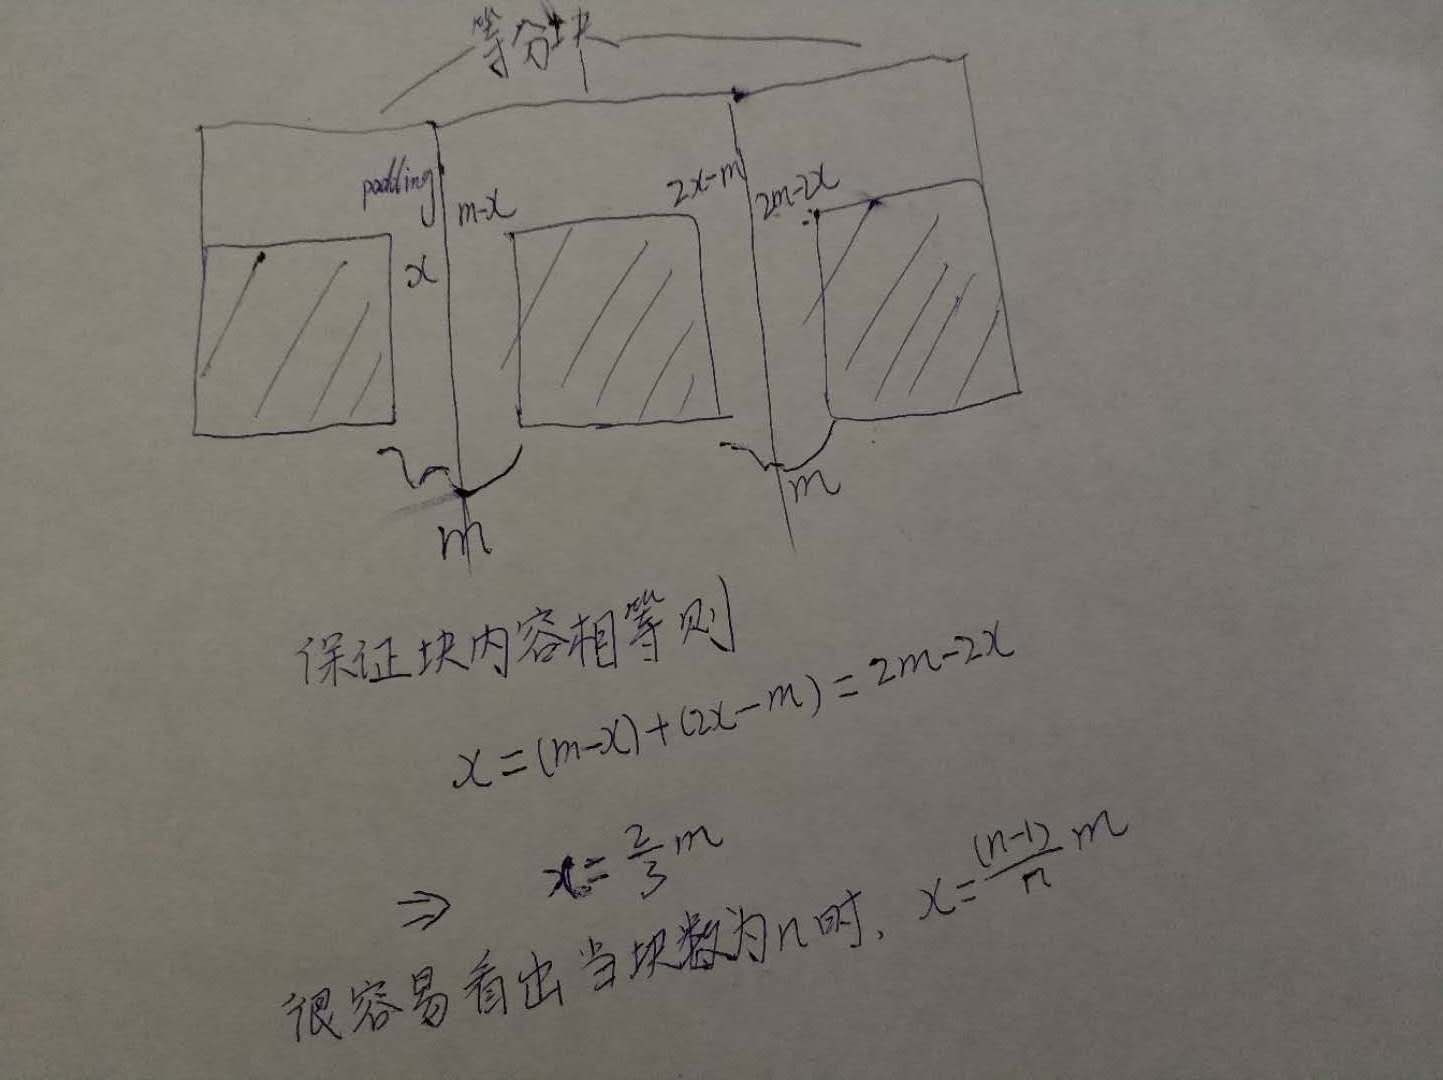 等分块
padding
m-x
2x-m
2m-2x
x
m
m
保证块内容相等则
x=(m-x)+(2x-m)=2m-2x
⇒ x=2/3 m
很容易看出当块数为n时, x=(n-1)/n m